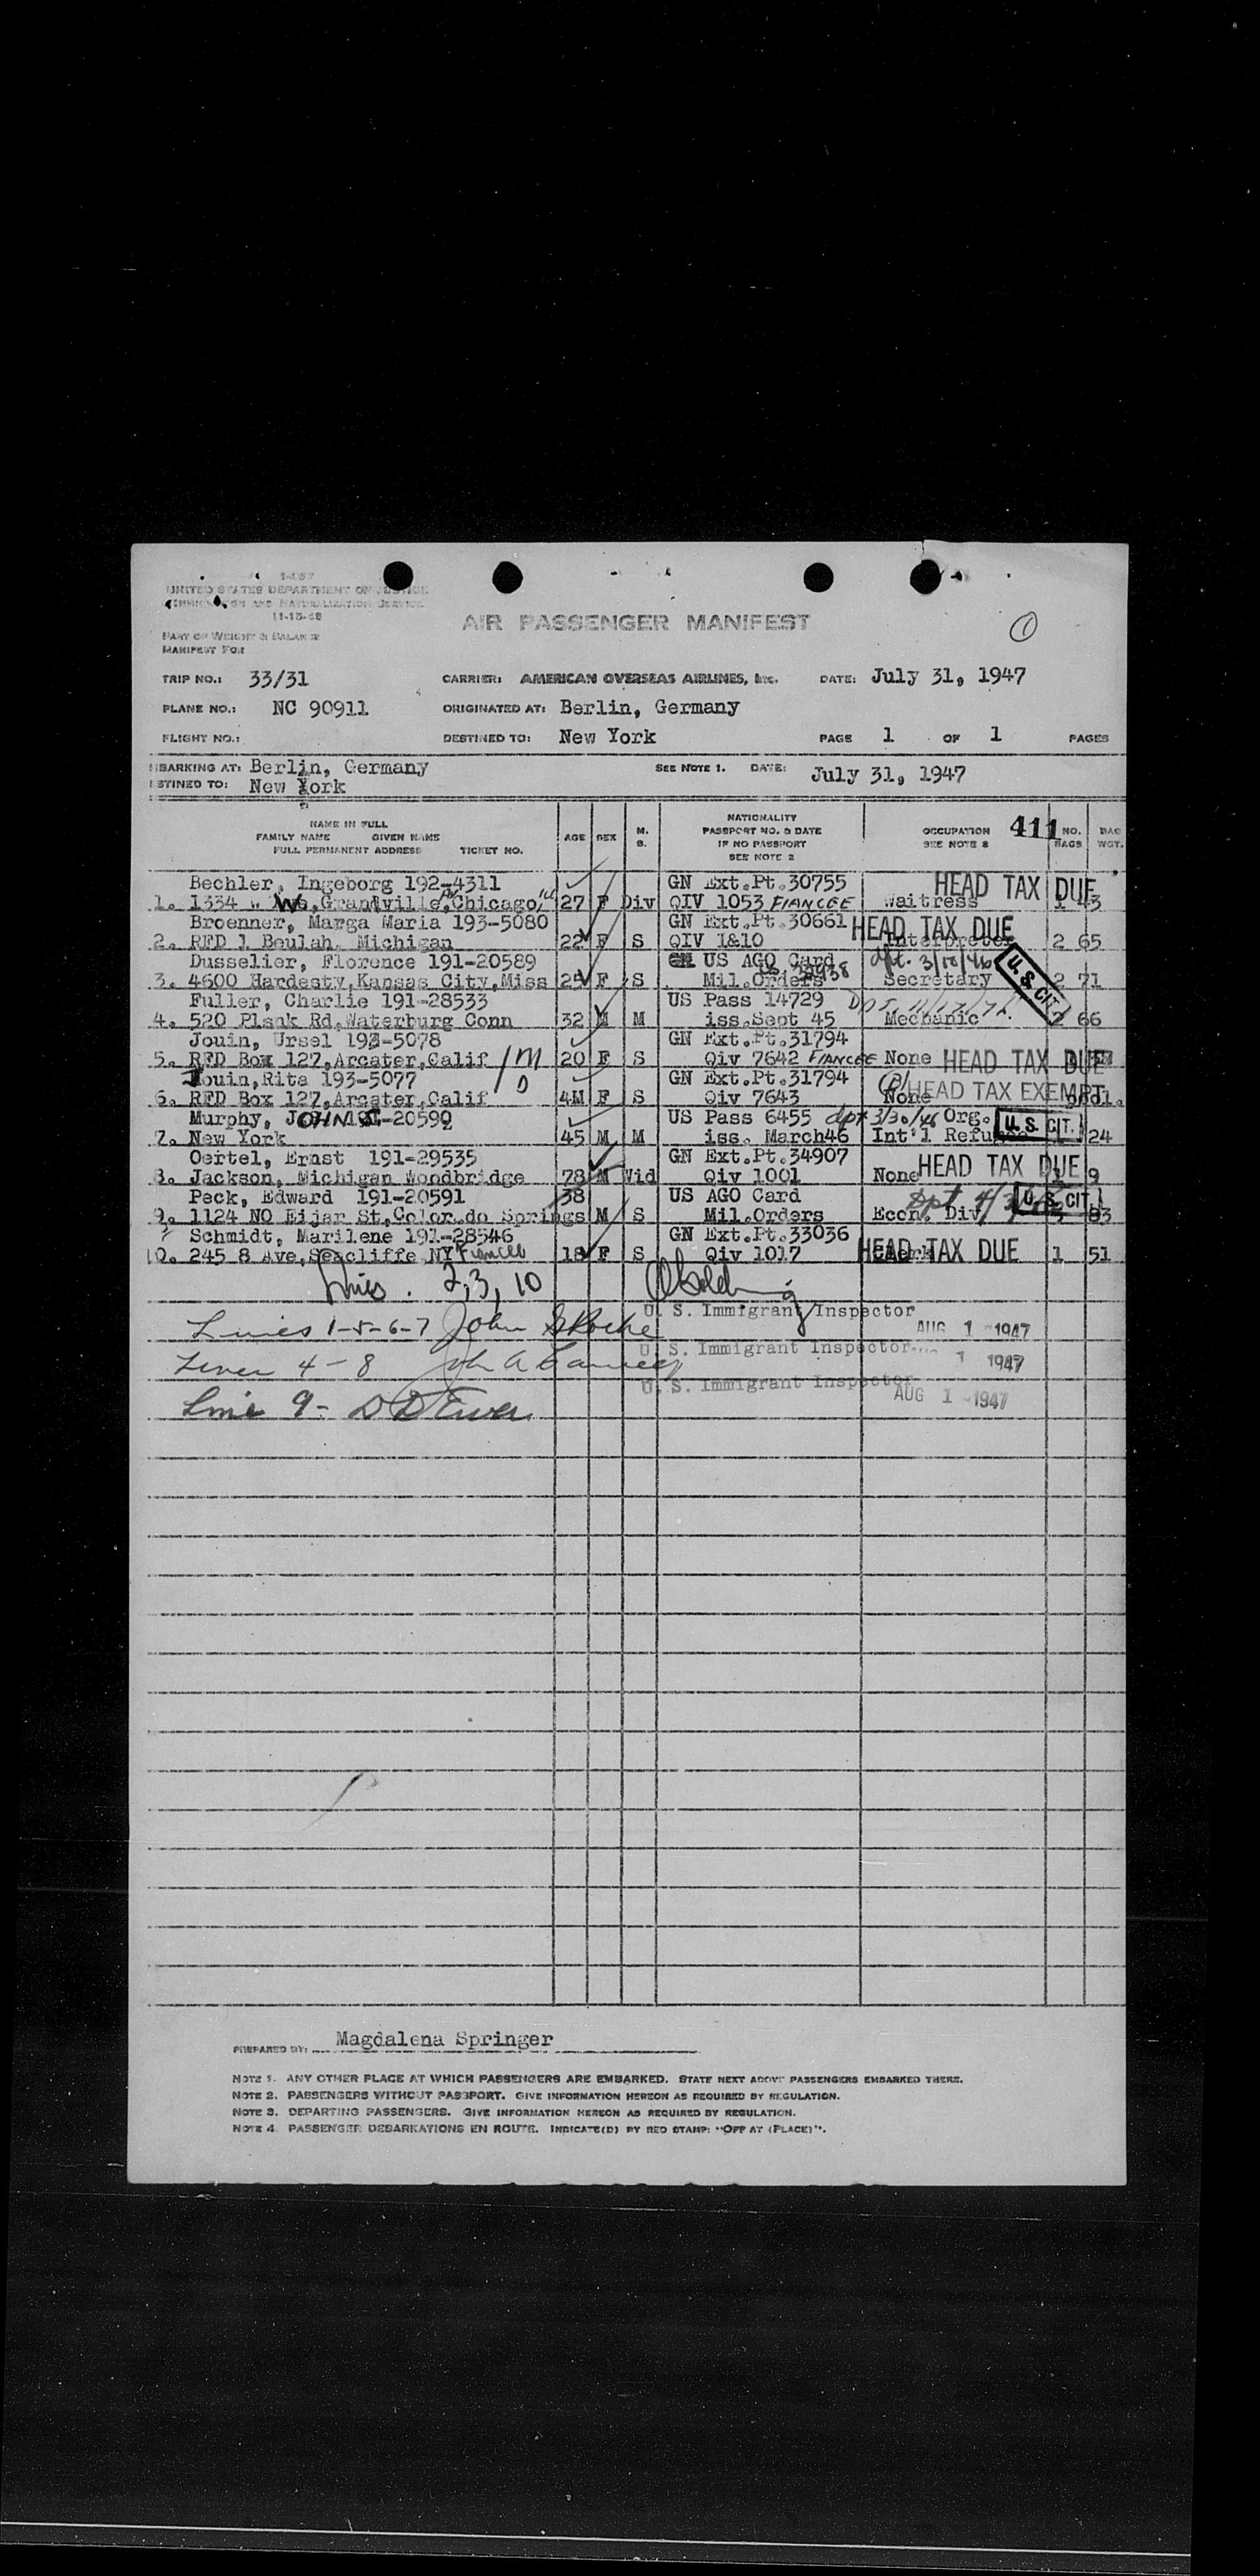 UNITED STATES DEPARTMENT OF JUSTICE
IMMIGRATION AND NATURALIZATION SERVICE
AIR PASSENGER MANIFEST
1
PART OF WEIGHT & BALANCE
MANIFEST FOR
TRIP NO.: 33/31 CARRIER: AMERICAN OVERSEAS AIRLINES, Inc. DATE: July 31, 1947
PLANE NO.: NC 90911 ORIGINATED AT: Berlin, Germany
FLIGHT NO.: DESTINED TO: New York PAGE 1 OF 1 PAGES
MBARKING AT: Berlin, Germany SEE NOTE 1. DATE: July 31, 1947
STINED TO: New York
NAME IN FULL
FAMILY NAME GIVEN NAME
FULL PERMANENT ADDRESS TICKET NO.
AGE SEX M. S.
NATIONALITY
PASSPORT NO. & DATE
IF NO PASSPORT
SEE NOTE 2
OCCUPATION 411 NO. BAGS BAG WGT.
Bechler, Ingeborg 192-4311 GN Ext.Pt.30755 HEAD TAX DUE
1. 1334 W Grandville, Chicago, 27 F Div QIV 1053 FIANCEE Waitress 43
Broenner, Marga Maria 193-5080 GN Ext.Pt.30661 HEAD TAX DUE
2. RFD 1 Beulah, Michigan 22 F S QIV 1&10 Interpreter 2 65
Dusselier, Florence 191-20589 US AGO Card dpt. 3/10/46 U. S. CIT.
3. 4600 Hardesty,Kansas City,Miss 25 F S Mil.Orders Secretary 2 71
Fuller, Charlie 191-28533 US Pass 14729
4. 520 Plank Rd,Waterburg Conn 32 M M iss.Sept 45 Mechanic 2 66
Jouin, Ursel 193-5078 GN Ext.Pt.31794
5. RFD Box 127,Arcater,Calif 1 M 20 F S Qiv 7642 FIANCEE None HEAD TAX DUE
Jouin,Rita 193-5077 D GN Ext.Pt.31794
6. RFD Box 127,Arcater,Calif 4M F S Qiv 7643 None HEAD TAX EXEMPT
Murphy, JOHN 191-20590 US Pass 6455 dpt 3/30/46 Org. U. S. CIT.
7. New York 45 M M iss. March46 Int'l Refugee 24
Oertel, Ernst 191-29535 GN Ext.Pt.34907 HEAD TAX DUE
8. Jackson, Michigan Woodbridge 78 M Wid Qiv 1001 None 9
Peck, Edward 191-20591 38 US AGO Card Dpt U. S. CIT.
9. 1124 NO Eijar St,Colorado Springs M S Mil.Orders Econ. Div 83
Schmidt, Marilene 191-28546 GN Ext.Pt.33036
10. 245 8 Ave,Seacliffe,NY Fiancee 18 F S Qiv 1017 HEAD TAX DUE 1 51
Lines. 2,3,10
U. S. Immigrant Inspector
Lines 1-5-6-7 John AUG 1 1947
U. S. Immigrant Inspector
Lines 4-8 John A 1 1947
U. S. Immigrant Inspector
Line 9- AUG 1 1947
PREPARED BY: Magdalena Springer
NOTE 1. ANY OTHER PLACE AT WHICH PASSENGERS ARE EMBARKED. STATE NEXT ABOVE PASSENGERS EMBARKED THERE.
NOTE 2. PASSENGERS WITHOUT PASSPORT. GIVE INFORMATION HEREON AS REQUIRED BY REGULATION.
NOTE 3. DEPARTING PASSENGERS. GIVE INFORMATION HEREON AS REQUIRED BY REGULATION.
NOTE 4. PASSENGER DEBARKATIONS EN ROUTE. INDICATE(D) BY RED STAMP: "OFF AT (PLACE)".